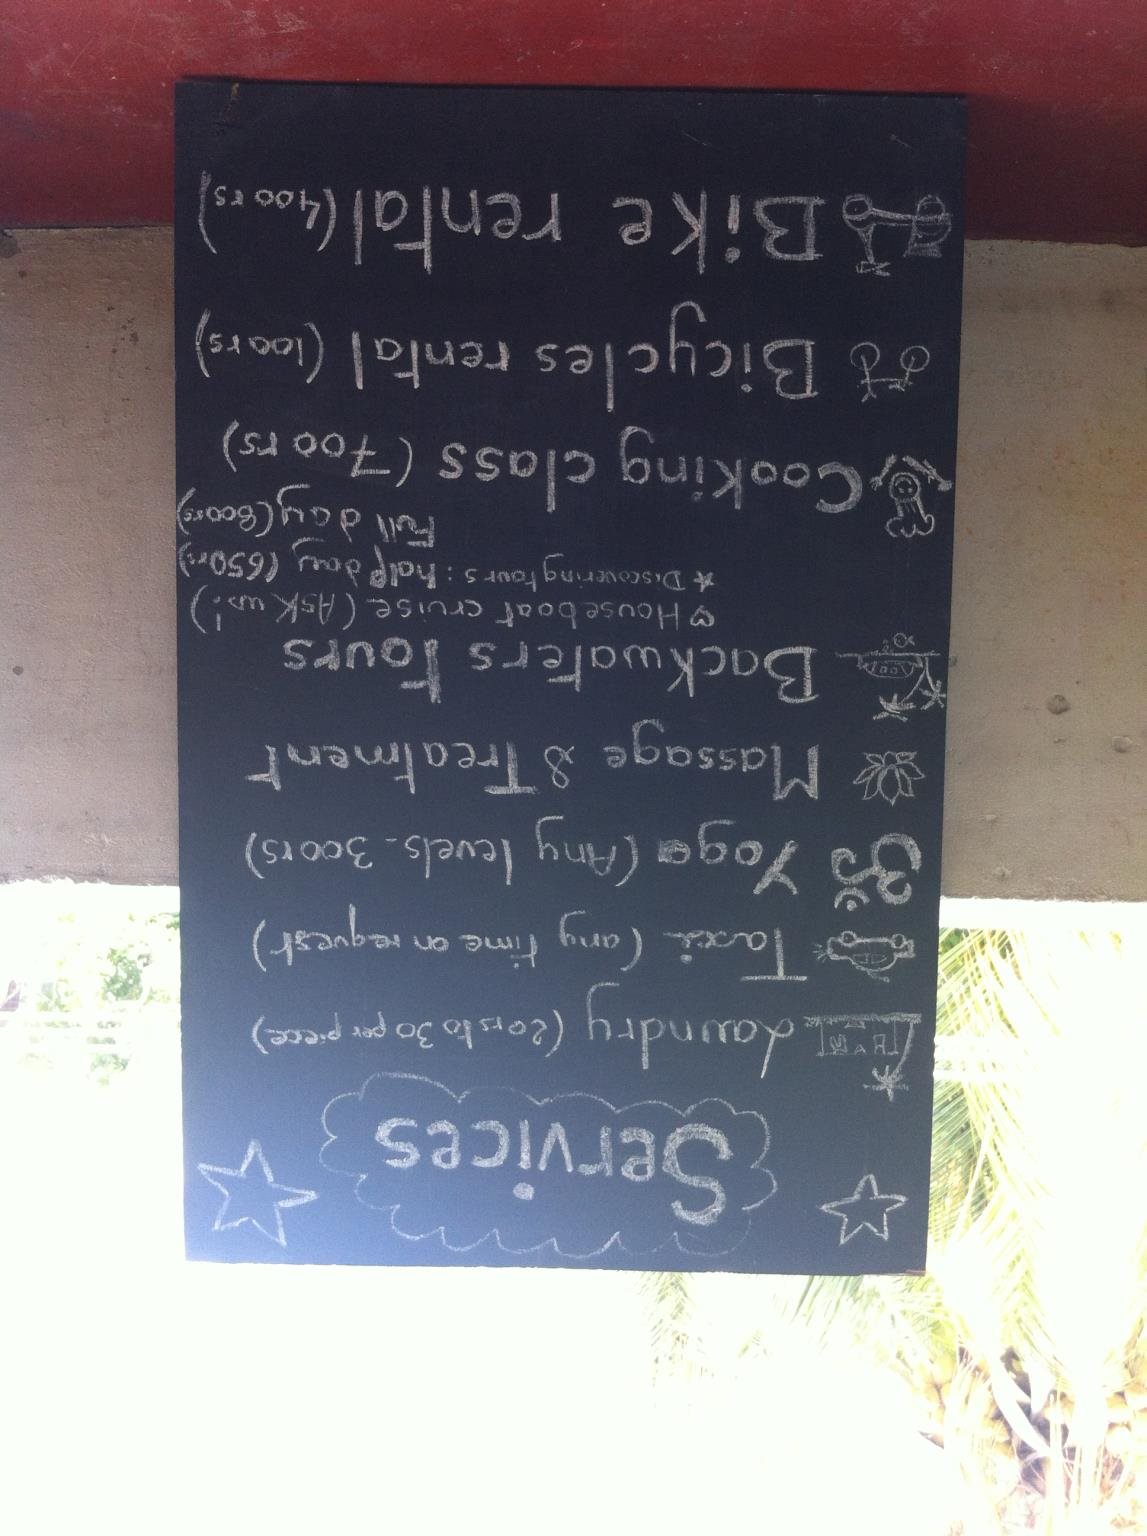 Services
Laundry (20rs to 30 per piece)
Taxi (any time on request)
Yoga (Any levels - 300rs)
Massage & Treatment
Backwaters tours
♡ Houseboat cruise (Ask us!)
★ Discovering tours : half day (650rs)
Full day (800rs)
Cooking class (700 rs)
Bicycles rental (100rs)
Bike rental (400 rs)